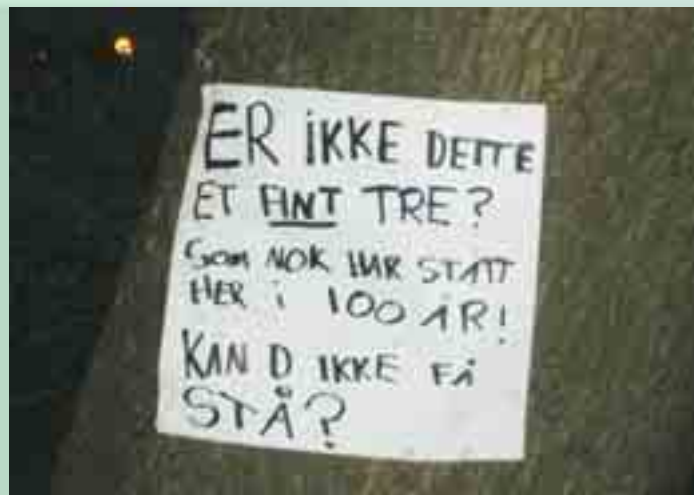 ER iKKE DETTE
ET FINT TRE?
SOM NOK HAR STÅTT
HER i 100 ÅR!
KAN D IKKE FÅ
STÅ?